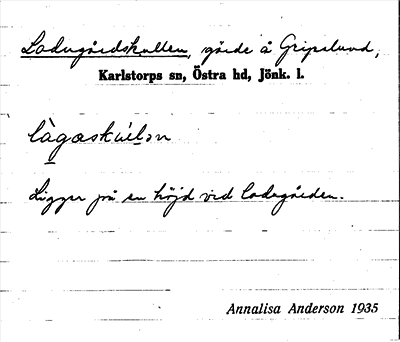 Ladugårdskullen, gärde å Gripslund,
Karlstorps sn, Östra hd, Jönk. l.
làgaskúlən
Ligger på en höjd vid ladugården.
Annalisa Anderson 1935